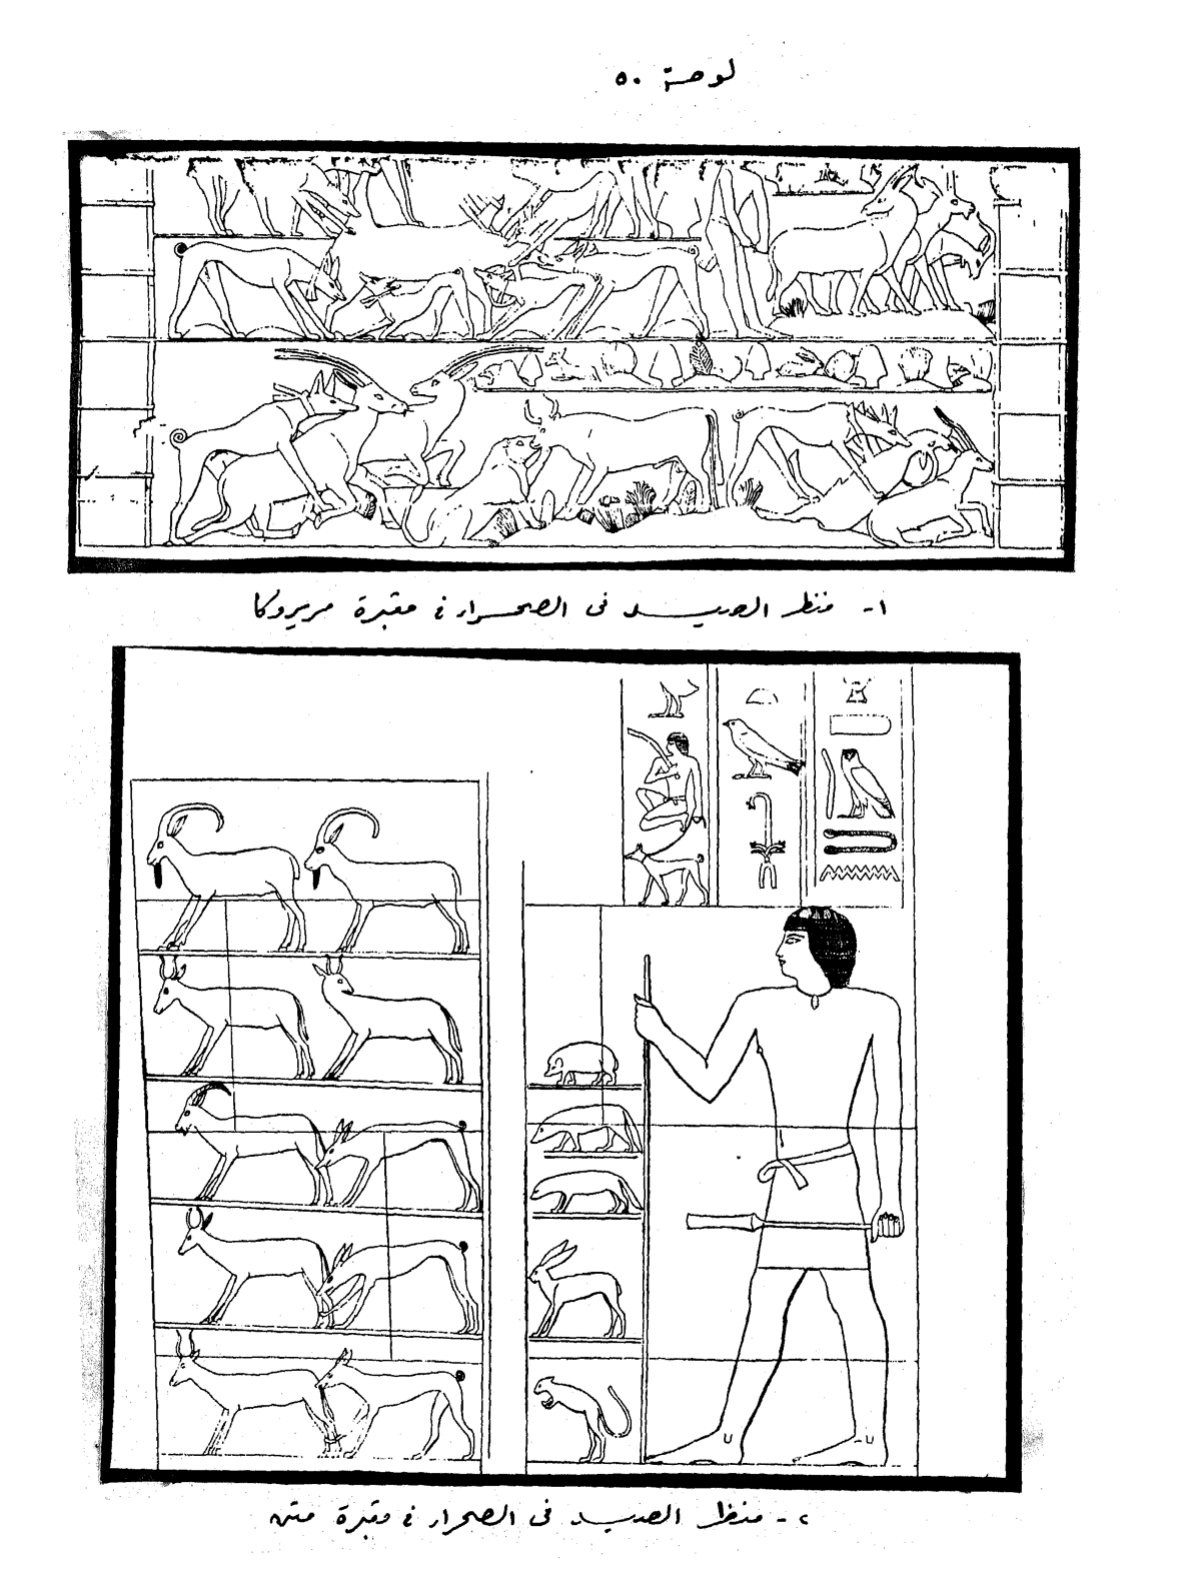 لوحة ٥٠
١- منظر الصيد فى الصحراء فى مقبرة مريروكا
٢- منظر الصيد فى الصحراء فى مقبرة متن